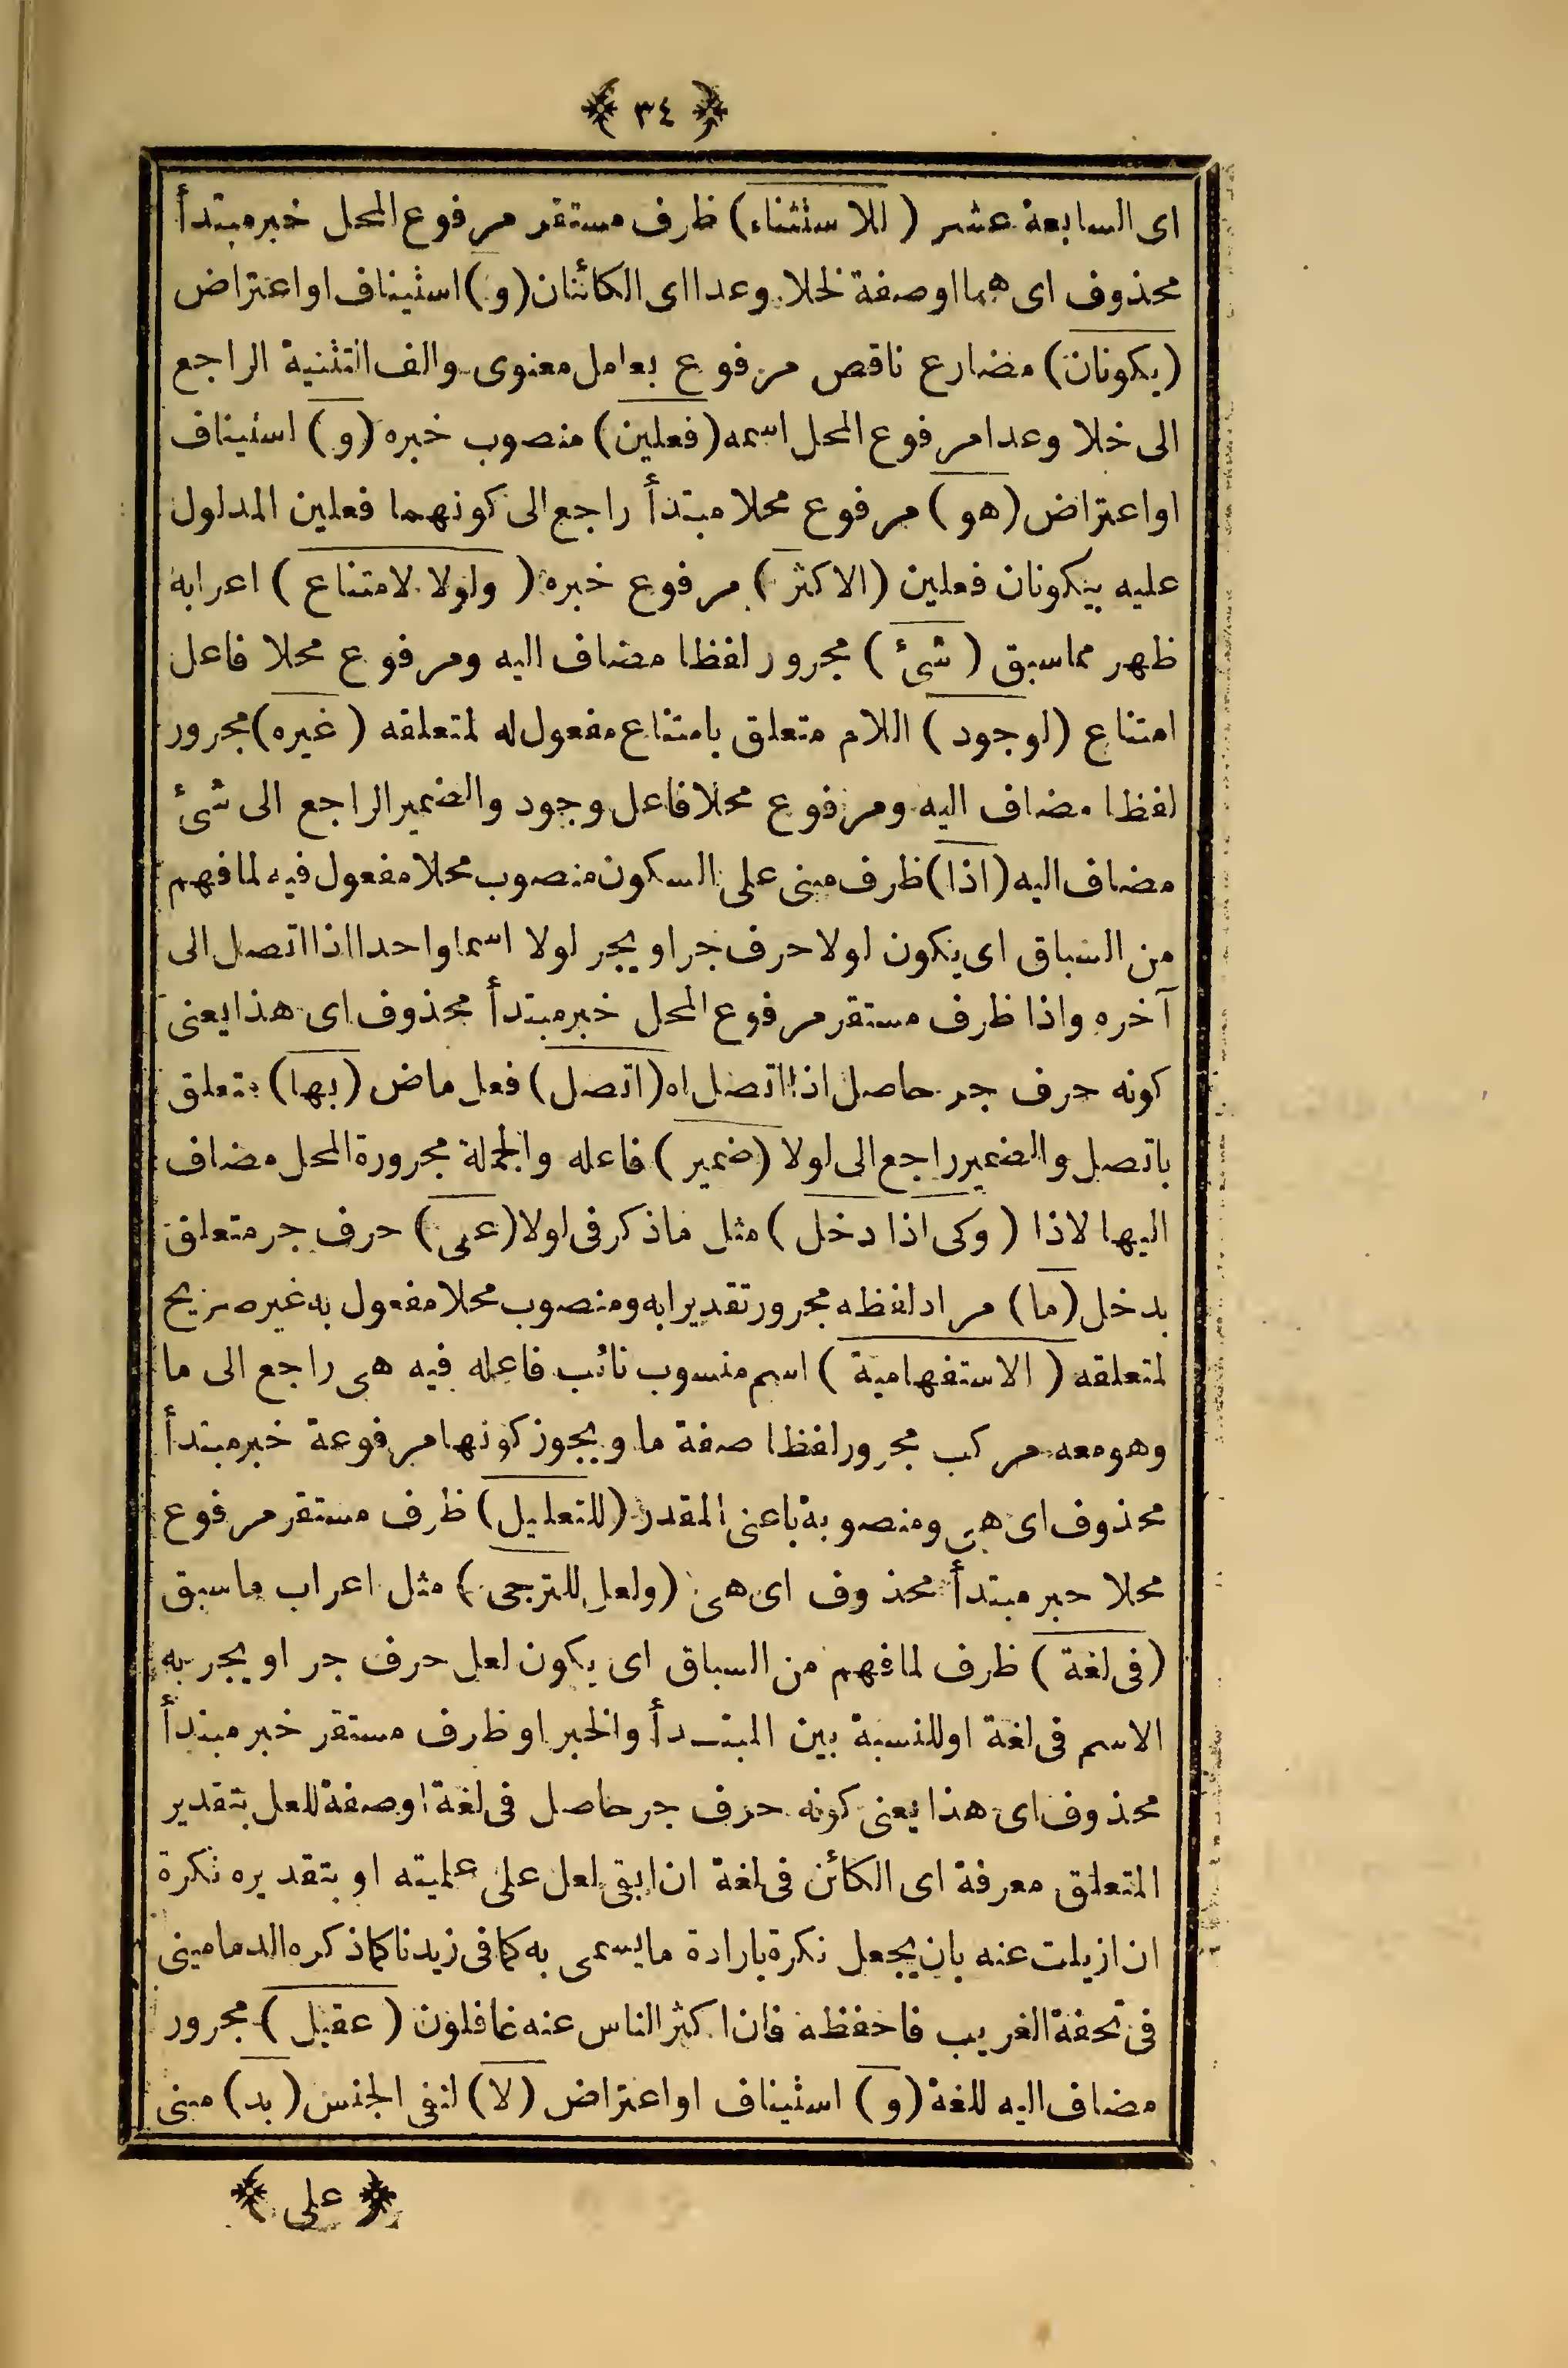 ﴿ ٣٤ ﴾
اى السابعة عشر ( للاستثناء ) ظرف مستقر مرفوع المحل خبر مبتدأ
محذوف اى هما اوصفة لخلا وعدا اى الكائنان ( و ) استيناف او اعتراض
( يكونان ) مضارع ناقص مرفوع بعامل معنوى والف التثنية الراجع
الى خلا وعدا مرفوع المحل اسمه ( فعلين ) منصوب خبره ( و ) استيناف
او اعتراض ( هو ) مرفوع محلا مبتدأ راجع الى كونهما فعلين المدلول
عليه بيكونان فعلين ( الاكثر ) مرفوع خبره ( ولولا لامتناع ) اعرابه
ظهر مماسبق ( شئ ) مجرور لفظا مضاف اليه ومرفوع محلا فاعل
امتناع ( لوجود ) اللام متعلق بامتناع مفعول له لمتعلقه ( غيره ) مجرور
لفظا مضاف اليه ومرفوع محلا فاعل وجود والضمير الراجع الى شئ
مضاف اليه ( اذا ) ظرف مبنى على السكون منصوب محلا مفعول فيه لمافهم
من السباق اى يكون لولا حرف جر او يجر لولا اسما واحدا اذا اتصل الى
آخره واذا ظرف مستقر مرفوع المحل خبر مبتدأ محذوف اى هذا يعنى
كونه حرف جر حاصل اذا اتصل اه ( اتصل ) فعل ماض ( بها ) متعلق
باتصل والضمير راجع الى لولا ( ضمير ) فاعله والجملة مجرورة المحل مضاف
اليها لاذا ( وكى اذا دخل ) مثل ماذكر فى لولا ( على ) حرف جر متعلق
بدخل ( ما ) مراد لفظه مجرور تقديرا به ومنصوب محلا مفعول به غير صريح
لمتعلقه ( الاستفهامية ) اسم منسوب نائب فاعله فيه هى راجع الى ما
وهو معه مركب مجرور لفظا صفة ما ويجوز كونها مرفوعة خبر مبتدأ
محذوف اى هى ومنصوبة باعنى المقدر ( للتعليل ) ظرف مستقر مرفوع
محلا خبر مبتدأ محذوف اى هى ( ولعل للترجى ) مثل اعراب ماسبق
( فى لغة ) ظرف لمافهم من السباق اى يكون لعل حرف جر او يجر به
الاسم فى لغة او للنسبة بين المبتـدأ والخبر او ظرف مستقر خبر مبتدأ
محذوف اى هذا يعنى كونه حرف جر حاصل فى لغة اوصفة للعل بتقدير
المتعلق معرفة اى الكائن فى لغة ان ابقى لعل على علميته او بتقديره نكرة
ان ازيلت عنه بان يجعل نكرة بارادة مايسمى به كما فى زيدنا كما ذكره الدمامينى
فى تحفة الغريب فاحفظه فان اكثر الناس عنه غافلون ( عقيل ) مجرور
مضاف اليه للغة ( و ) استيناف او اعتراض ( لا ) لنفى الجنس ( بد ) مبنى
﴿ على ﴾